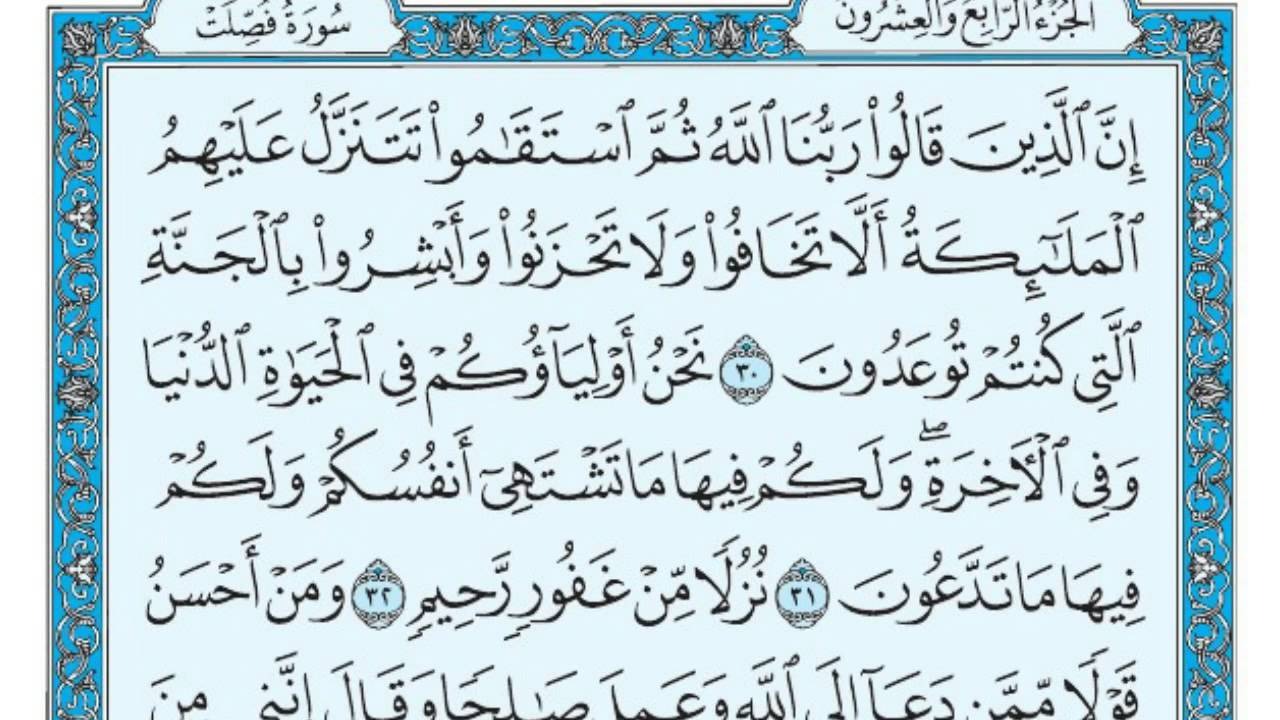 الجُزْءُ الرَّابِعُ وَالعِشْرُونَ
سُورَةُ فُصِّلَتْ
إِنَّ ٱلَّذِينَ قَالُوا۟ رَبُّنَا ٱللَّهُ ثُمَّ ٱسْتَقَٰمُوا۟ تَتَنَزَّلُ عَلَيْهِمُ
ٱلْمَلَٰٓئِكَةُ أَلَّا تَخَافُوا۟ وَلَا تَحْزَنُوا۟ وَأَبْشِرُوا۟ بِٱلْجَنَّةِ
ٱلَّتِى كُنتُمْ تُوعَدُونَ ٣٠ نَحْنُ أَوْلِيَآؤُكُمْ فِى ٱلْحَيَوٰةِ ٱلدُّنْيَا
وَفِى ٱلْأَخِرَةِ ۖ وَلَكُمْ فِيهَا مَا تَشْتَهِىٓ أَنفُسُكُمْ وَلَكُمْ
فِيهَا مَا تَدَّعُونَ ٣١ نُزُلًا مِّنْ غَفُورٍ رَّحِيمٍ ٣٢ وَمَنْ أَحْسَنُ
قَوْلًا مِّمَّن دَعَآ إِلَى ٱللَّهِ وَعَمِلَ صَٰلِحًا وَقَالَ إِنَّنِى مِنَ